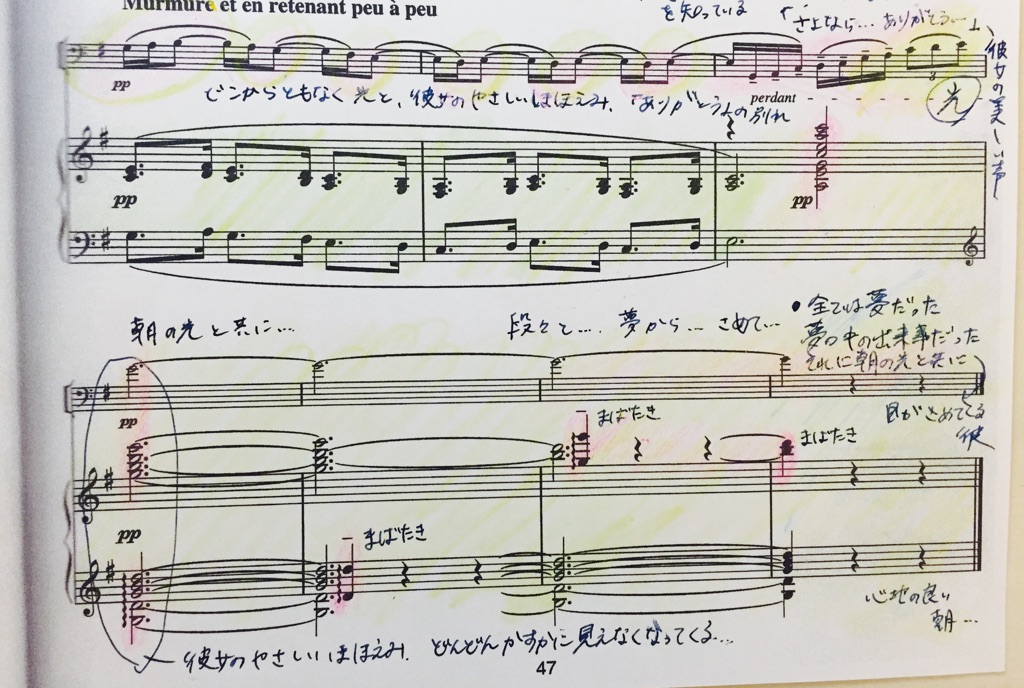 Murmuré et en retenant peu à peu
を知っている
「さよなら… ありがとう…」
彼女の美しい声
pp
どこからともなく光と、彼女のやさしいほほえみ、「ありがとう」の別れ
perdant
3
光
pp
pp
朝の光と共に…
段々と…. 夢から… さめて…
• 全ては夢だった
夢の中の出来事だった
それに朝の光と共に
目がさめてくる
彼
pp
まばたき
まばたき
pp
まばたき
心地の良い
朝…
彼女のやさしいほほえみ、どんどんかすかに見えなくなってくる…
47